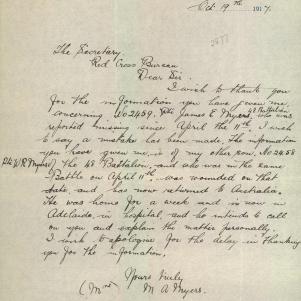 Oct 19th 1917.
The Secretary
Red Cross Bureau
Dear Sir.
I wish to thank you
for the information you have given me
concerning No 2459. Pte James E. Myers, 48 Battalion who was
reported missing since April the 11th. I wish
to say a mistake has been made, the information
you have given me, is of his brother, No 2458
Pte W. R. Myers of the 48 Battalion, and who was in the same
Battle on April 11th was wounded on that
date, and has now returned to Australia.
He was home for a week and is now in
Adelaide, in hospital, and he intends to call
on you and explain the matter personally.
I wish to apologise for the delay in thanking
you for the information.
Yours truly
(Mrs) M A Myers.